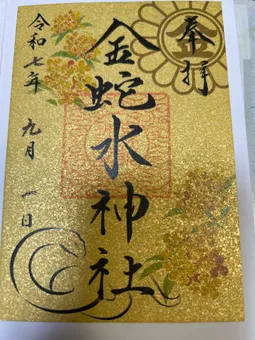 奉拝
金蛇水神社
令和七年 九月 一日